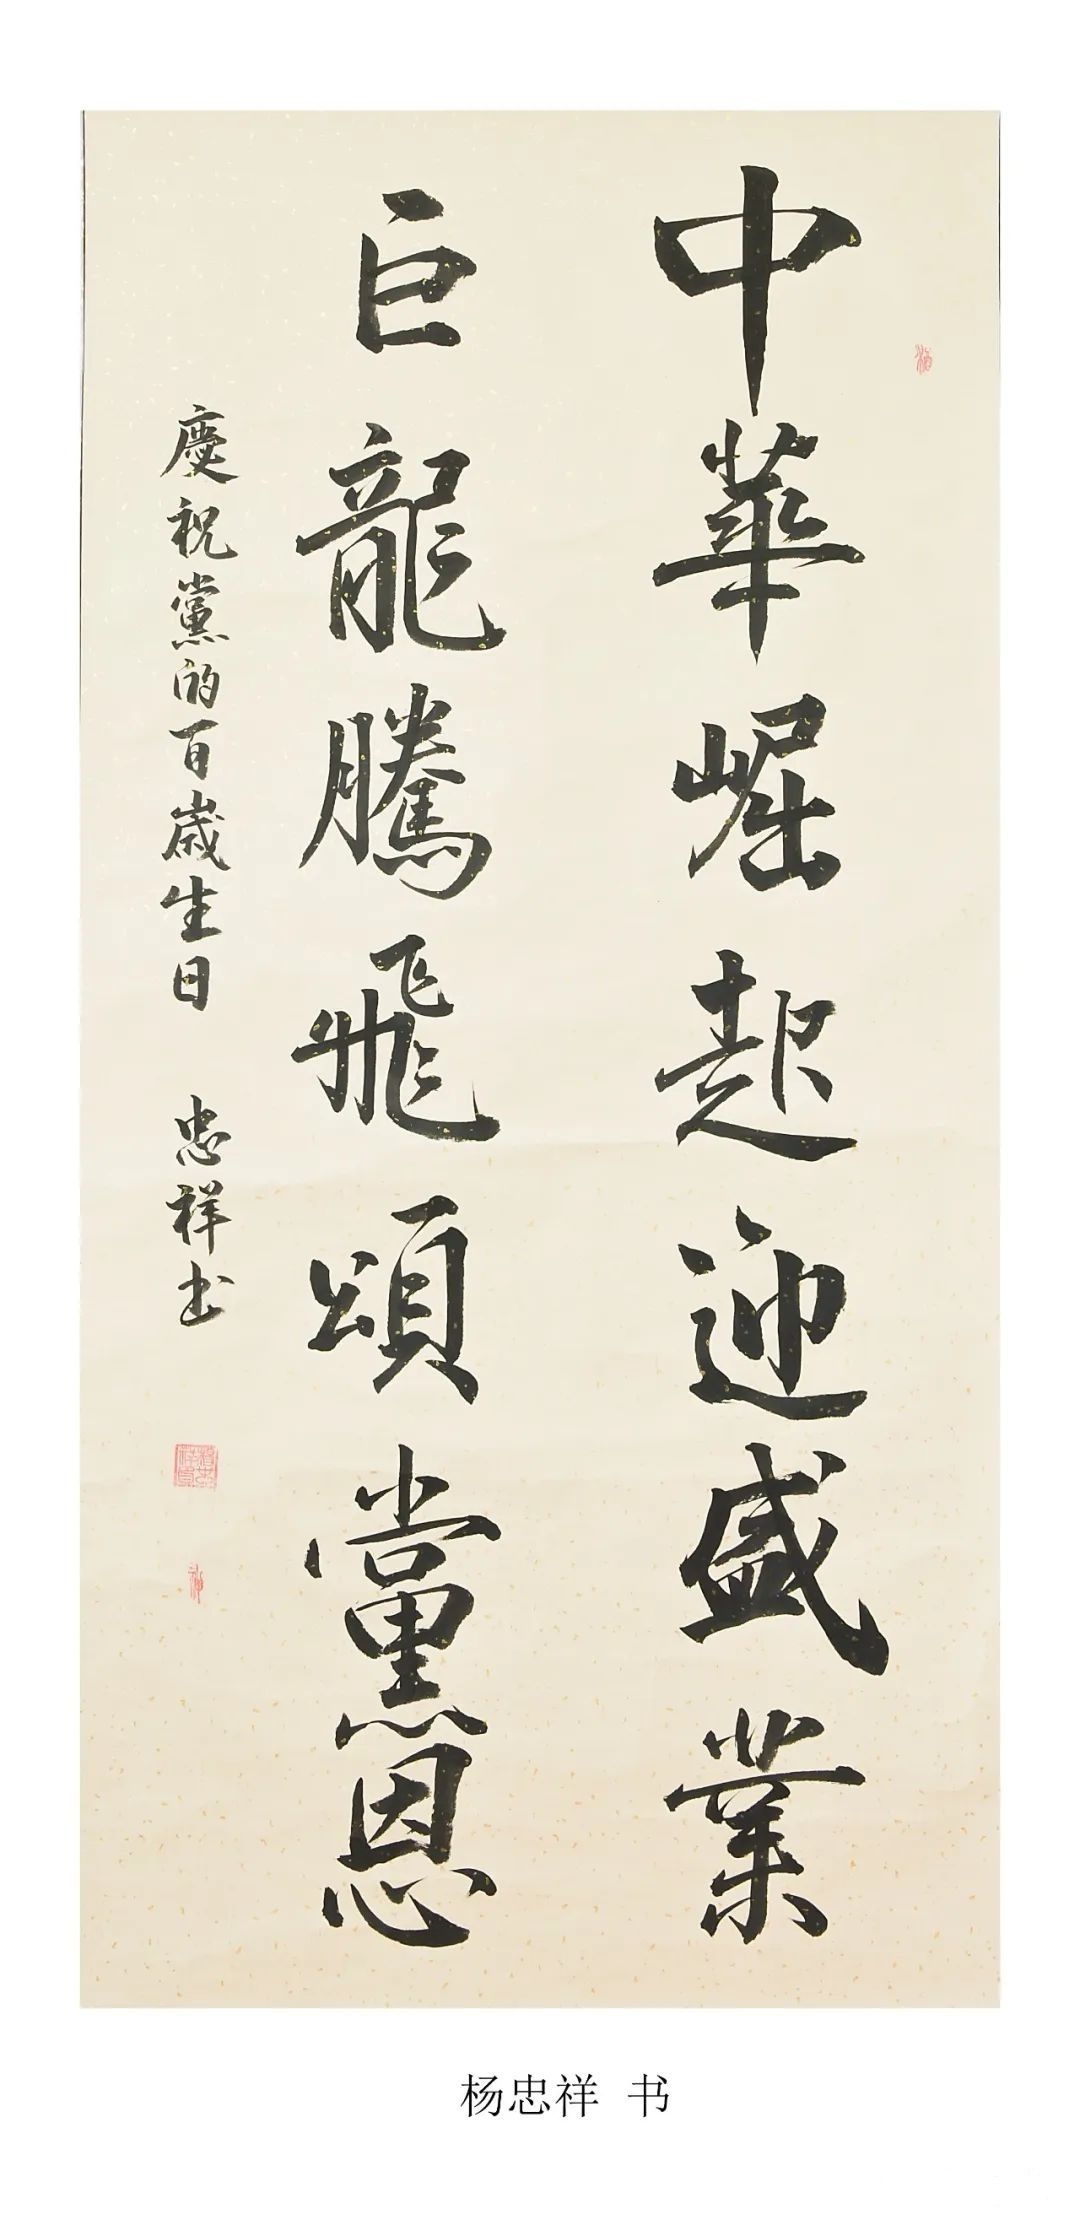 中華崛起迎盛業
巨龍騰飛頌黨恩
慶祝黨的百歲生日 忠祥书
杨忠祥 书